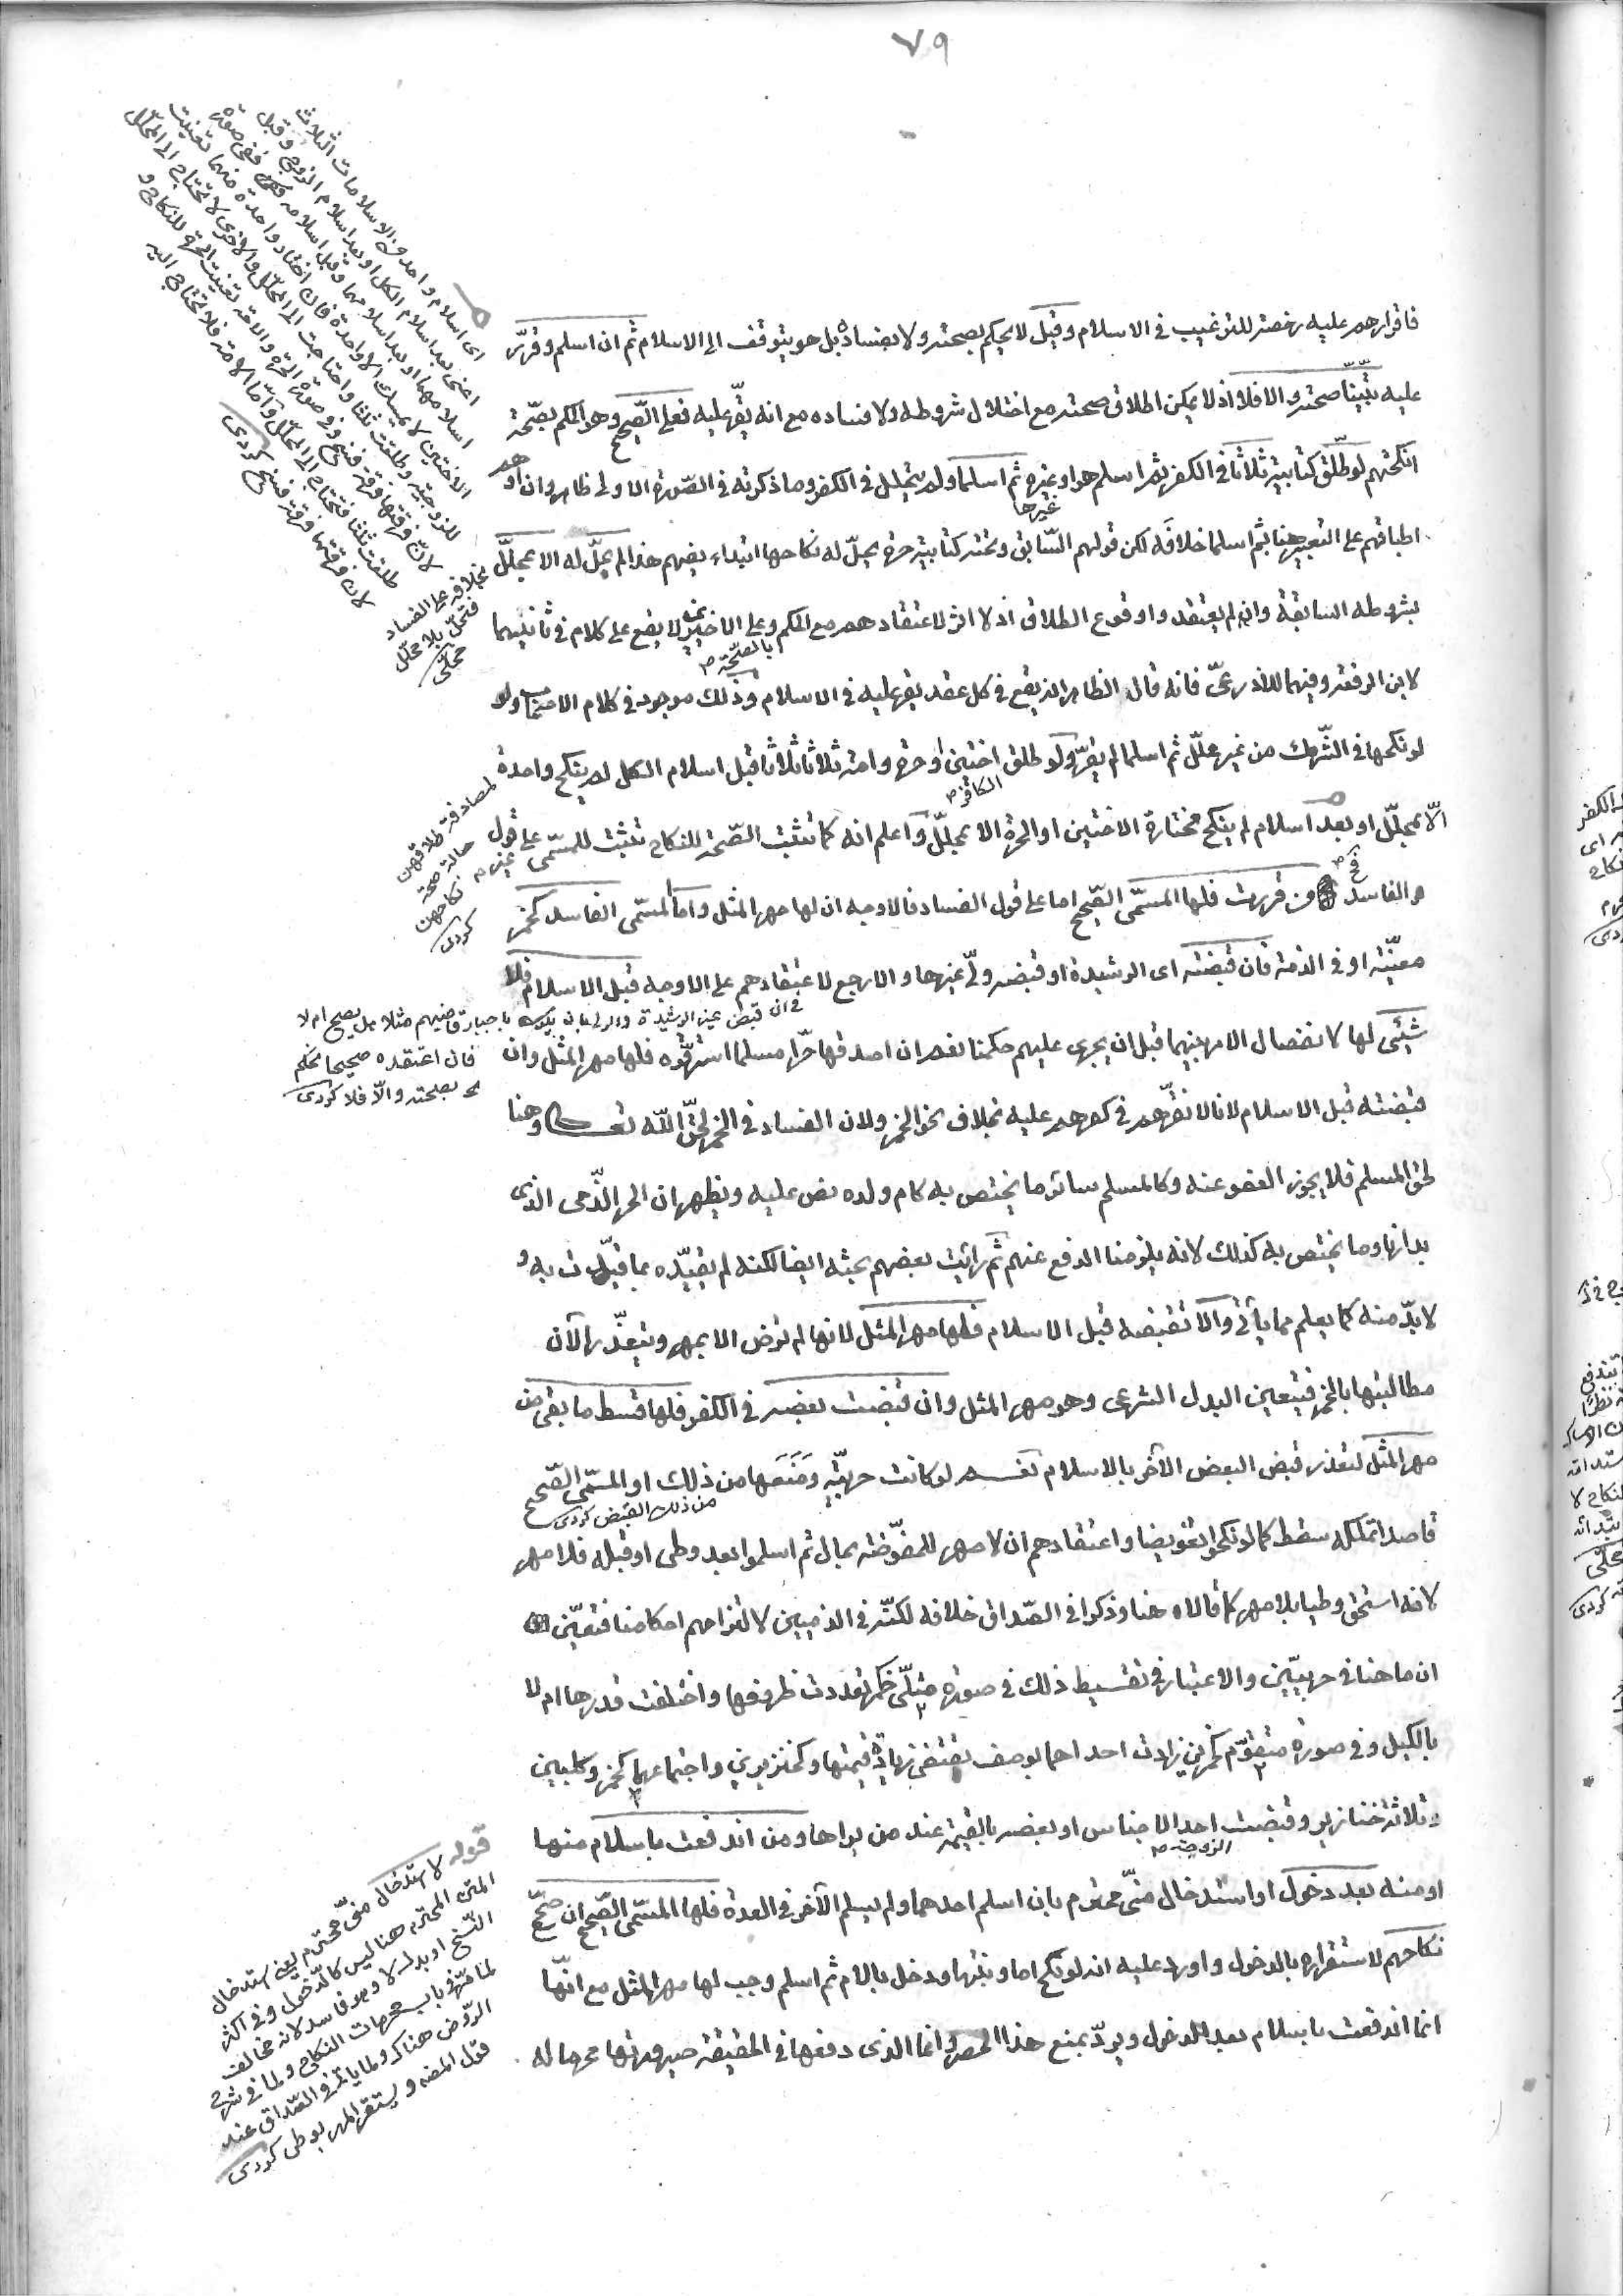 ٧٩
فاقرارهم عليه رخصة للترغيب في الاسلام وقيل لا يحكم بصحته ولا بفساده بل هو يتوقف الى الاسلام ثم ان اسلم وقرّر
عليه تبيّنا صحته والا فلا اذ لا يمكن اطلاق صحته مع اختلال شروطه ولا فساده مع انه يقرّ عليه فعلى الصّحيح وهو الحكم بصحّة
انكحتهم لو طلّق كتابية ثلاثا في الكفر ثم اسلم هو او غيره ثم اسلما ولم تتحلل في الكفر وما ذكرته في الصّورة الاولى ظاهر وان اوهم
غيرها
اطباقهم على التعبير هنا بثم اسلما خلافه لكن قولهم السّابق وتحته كتابية حرة يحلّ له نكاحها ابتداء يفهم هذا لم تحلّ له الا بمحلّل
بشروطه السابقة وان لم يعتقدوا وقوع الطلاق اذ لا اثر لاعتقادهم مع الحكم بالصّحّة وعلى الاخيرين لا يقع على كلام في ثانيهما
لابن الرفعة وفيهما للاذرعيّ فانه قال الظاهر انه يقع في كل عقد يقر عليه في الاسلام وذلك موجود في كلام الائمة ولو
لو نكحها في الشّرك من غير محلّل ثم اسلما لم يقرّ ولو طلق الكافر اختين او حرة وامة ثلاثا ثلاثا قبل اسلام الكل لم ينكح واحدة
الّا بمحلّل او بعد اسلام لم ينكح مختارة الاختين او الحرة الا بمحلّل واعلم انه كما تثبت الصّحة للنكاح تثبت للمسّمى على قول
والفاسد فح من قررت فلها المسمّى الصّحيح اما على قول الفساد فالاوجه ان لها مهر المثل واما المسّمى الفاسد كخمر
معيّنة او في الذمة فان قبضته اى الرشيدة او قبضه ولىّ غيرها والا رجع لاعتقادهم على الاوجه قبل الاسلام فلا
شيئ لها لانفصال الامر بينهما قبل ان يجرى عليهم حكمنا نعم ان اصدقها حرّا مسلما استرقّوه فلها مهر المثل وان
قبضته قبل الاسلام لانا لا نقرّهم في كفرهم عليه بخلاف نحو الخمر ولان الفساد في الخمر لحقّ اللّه تعالى وهنا
لحق المسلم فلا يجوز العفو عنه وكالمسلم سائر ما يختص به كام ولده نص عليه ويظهر ان الحر الذّمى الذى
بدارنا وما يختص به كذلك لانه يلزمنا الدفع عنهم ثم رأيت بعضهم بحثه ايضا لكنه لم يقيّده بما قيّدت به و
لا بدّ منه كما يعلم مما يأتى والا تقبضه قبل الاسلام فلها مهر المثل لانها لم ترض الا بمهر وتعذّر الآن
مطالبتها بالخمر فتعين البدل الشرعى وهو مهر المثل وان قبضت بعضه في الكفر فلها قسط ما بقى من
مهر المثل لتعذر قبض البعض الآخر بالاسلام نعم لو كانت حربيّة ومنعها من ذلك او المسّمى الصّحيح
من ذلك القبض كردى
قاصدا تملكه سقط كما لو نكحوا تفويضا واعتقادهم ان لا مهر للمفوّضة بحال ثم اسلموا بعد وطى او قبله فلا مهر
لانه استحق وطيا بلا مهر كما قالاه هنا وذكرا في الصّداق خلافه لكنّه في الذميين لالتزامهم احكامنا فتعيّن
ان ما هنا في حربيّين والاعتبار في تقسيط ذلك في صورة مثلىّ كخمر تعددت ظروفها واختلفت قدرها ام لا
بالكيل وفي صورة متقوّم كخمرين زادت احداهما بوصف يقتضى زيادة قيمتها وكخنزيرين واجتماعهما كخمر وكلبين
وثلاثة خنازير وقبضت احد الاجناس او بعضه بالقيمة عند من يراها ومن اندفعت باسلام منها
او منه بعد دخول او استدخال منىّ محترم بان اسلم احدهما ولم يسلم الآخر في العدة فلها المسّمى الصّحيح ان صحّح
نكاحهم لاستقراره بالدخول واورد عليه انه لو نكح اما وبنتها ودخل بالام ثم اسلم وجب لها مهر المثل مع انّها
انما اندفعت باسلام بعد الدخول ويردّ بمنع هذا الحصر وانما الذى دفعها في الحقيقة صيرورتها محرما له
اى اسلام واحد في الاسلامات الثلاث
اعنى بعد اسلام الكل او بعد اسلام الزوج وقبل
اسلامهما او بعد اسلامهما وقبل اسلامه ففى صورة
الاختين لا يمسك الا واحدة فان اختار واحدة منهما تعينت
للزوجية وطلقت ثلثا واحتاجت الى المحلّل والاخرى لا تحتاج الى المحلّل
لانّ فرقتها فرقة فسخ وفى صورة الحرة والامة تعينت الحرة للنكاح و
طلقت ثلثا فتحتاج الى المحلّل وامّا الامة فلا تحتاج اليه
لان فرقتها فرقة فسخ كردى
بخلافه على الفساد
فتحلّ بلا محلّل
محلّى
لمصادفة طلاقهن
حالة صحة
نكاحهن
كردى
في ان قبض غير الرشيدة
باجبار قاضيهم مثلا هل يصح ام لا
فان اعتقده صحيحا نحكم
بصحته والّا فلا كردى
قوله لاستدخال منىّ محترم يعنى استدخال
المنى المحترم هنا ليس كالدّخول وفى اكثر
النّسخ او بدل لا وهو فاسد لانه مخالف
لما مرّ في باب محرمات النكاح ولما في شرح
الرّوض هناك ولما يأتى في الصّداق عند
قول المصه ويستقر المهر بوطى كردى